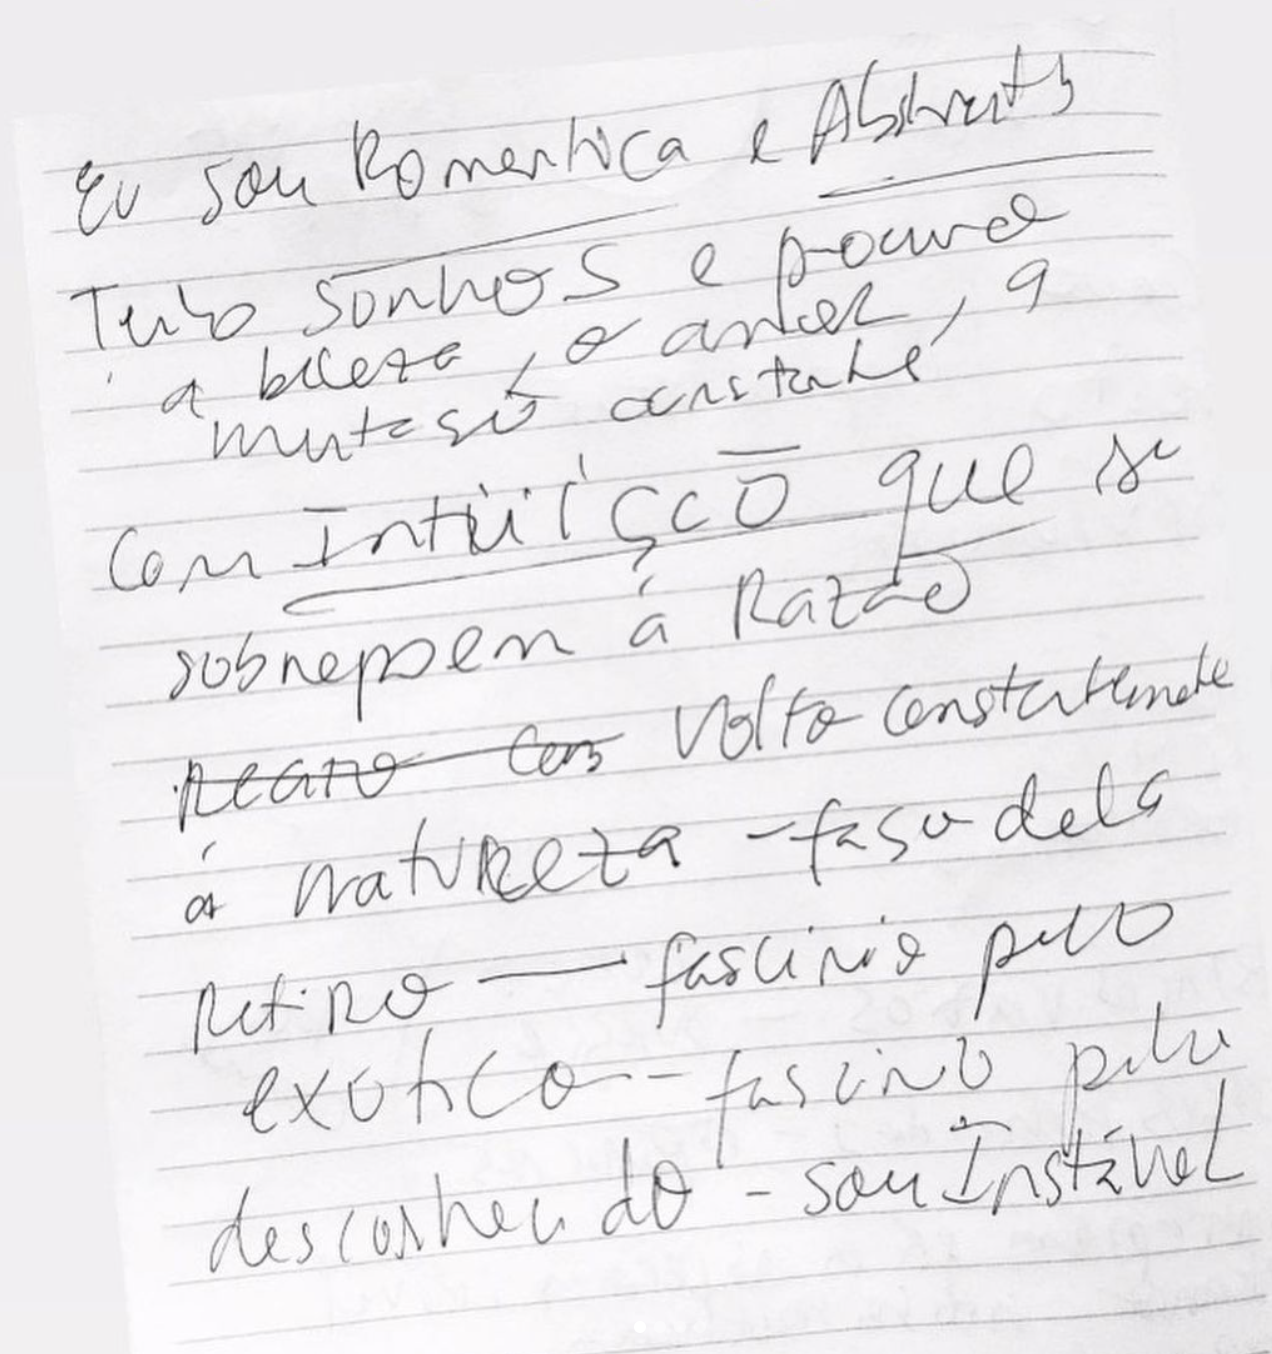 Eu sou Romantica e Abstrata
Tenho sonhos e procuro
a beleza, o amor, a
mutação constante
Com Intuição que se
sobrepoem á Razão
Volto constantemente
á natureza - faço dela
Retiro — fascinio pelo
exotico - fascinio pelo
desconhecido - sou Instável